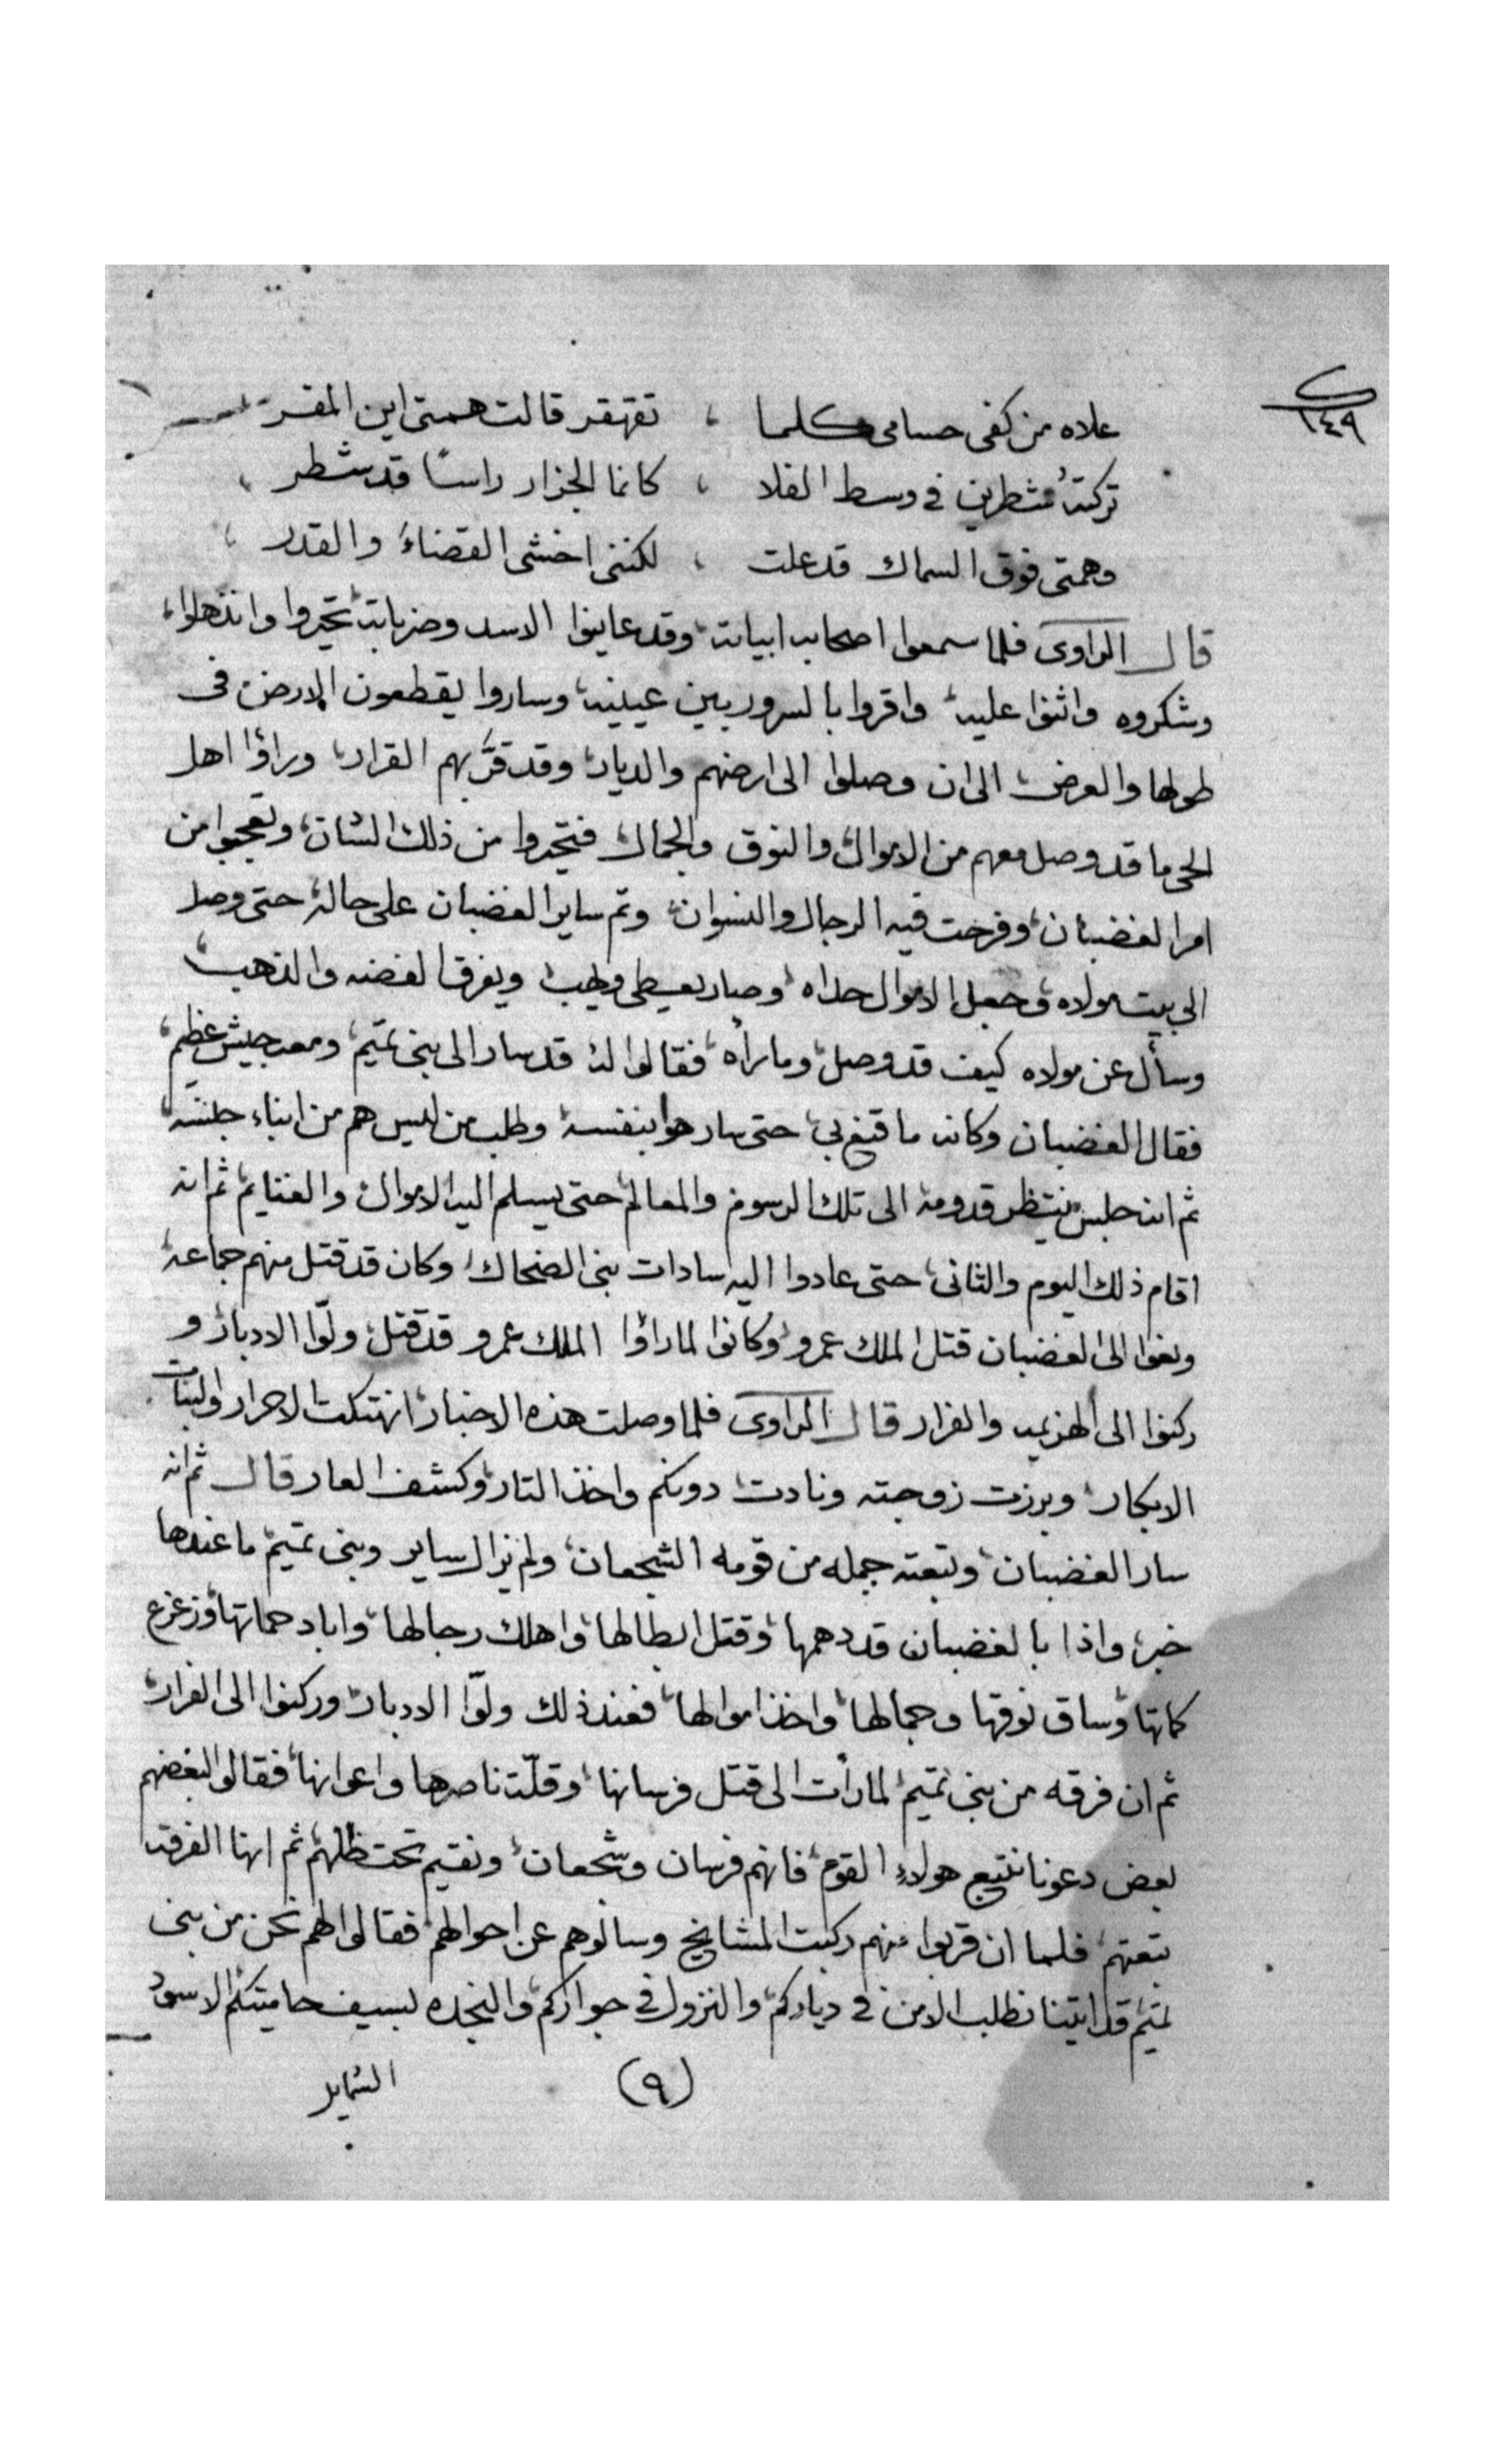 ١٤٩
علاه من كفى حسامى كلما ، تقهقر قالت همتى اين المفر
تركتهُ شطرين فى وسط الفلا ، كانما الجزار راسًا قد شطر ،
وهمتى فوق السماك قد علت ، لكننى اخشى القضاءُ والقدر ،
قال الراوى فلما سمعوا اصحابه ابياته، وقد عاينوا الاسد وضرباته، تحيروا وانذهلوا،
وشكروه واثنوا عليه، واقروا بالسرور بين عينيه، وساروا يقطعون الارض فى
طولها والعرض، الى ان وصلوا الى ارضهم والديار، وقد قرَّ بهم القرار، وراؤا اهل
الحى ما قد وصل معهم من الاموال، والنوق والجمال، فتحيروا من ذلك الشان، وتعجبوا من
امر الغضبان، وفرحت فيه الرجال والنسوان، وتم ساير الغضبان على حاله، حتى وصل
الى بيت مولاه، وجعل الاموال حداه، وصار يعطى ويهب، ويفرق الفضه والذهب،
وسأل عن مولاه كيف قد وصل، وما رأه، فقالوا له، قد سار الى بنى تميم، ومعه جيش عظيم،
فقال الغضبان وكانه ما قنع بى، حتى سار هوا بنفسه، وطلب من ليس هم من ابناء جنسه،
ثم انه جلس ينتظر قدومه الى تلك الرسوم والمعالم، حتى يسلم اليه الاموال، والغنايم، ثم انه
اقام ذلك اليوم والثانى، حتى عادوا اليه سادات بنى الضحاك، وكان قد قتل منهم جماعه،
ونعوا الى الغضبان قتل الملك عمرو، وكانوا لما راؤا الملك عمرو قد قتل، ولّوا الادبار، و
ركنوا الى الهزيمه والفرار قال الراوى فلما وصلت هذه الاخبار، انهتكت الاحرار والبنات
الابكار، وبرزت زوجته ونادت، دونكم واخذ التار، وكشف العار قال ثم انه
سار الغضبان، وتبعته جمله من قومه الشجعان، ولم يزال ساير وبنى تميم، ما عندها
خبر، واذا بالغضبان قد دهمها، وقتل ابطالها، واهلك رجالها، واباد حماتها، وزعزع
كماتها، وساق نوقها وجمالها، واخذ اموالها، فعند ذلك ولّوا الادبار، وركنوا الى الفرار،
ثم ان فرقه من بنى تميم، لما رأت الى قتل فرسانها، وقلّت ناصرها واعوانها، فقالوا لبعضهم
بعض دعونا نتبع هولاءِ القوم، فانهم فرسان وشجعان، ونقيم تحت ظلهم، ثم انها الفرقه
تبعتهم، فلما ان قربوا منهم ركبت المشايخ وسالوهم عن احوالهم، فقالوا لهم نحن من بنى
تميم، قد اتينا نطلب الامن، فى دياركم، والنزول فى جواركم، والنجده لسيف حاميتكم، الاسود
(٩) الشمايل